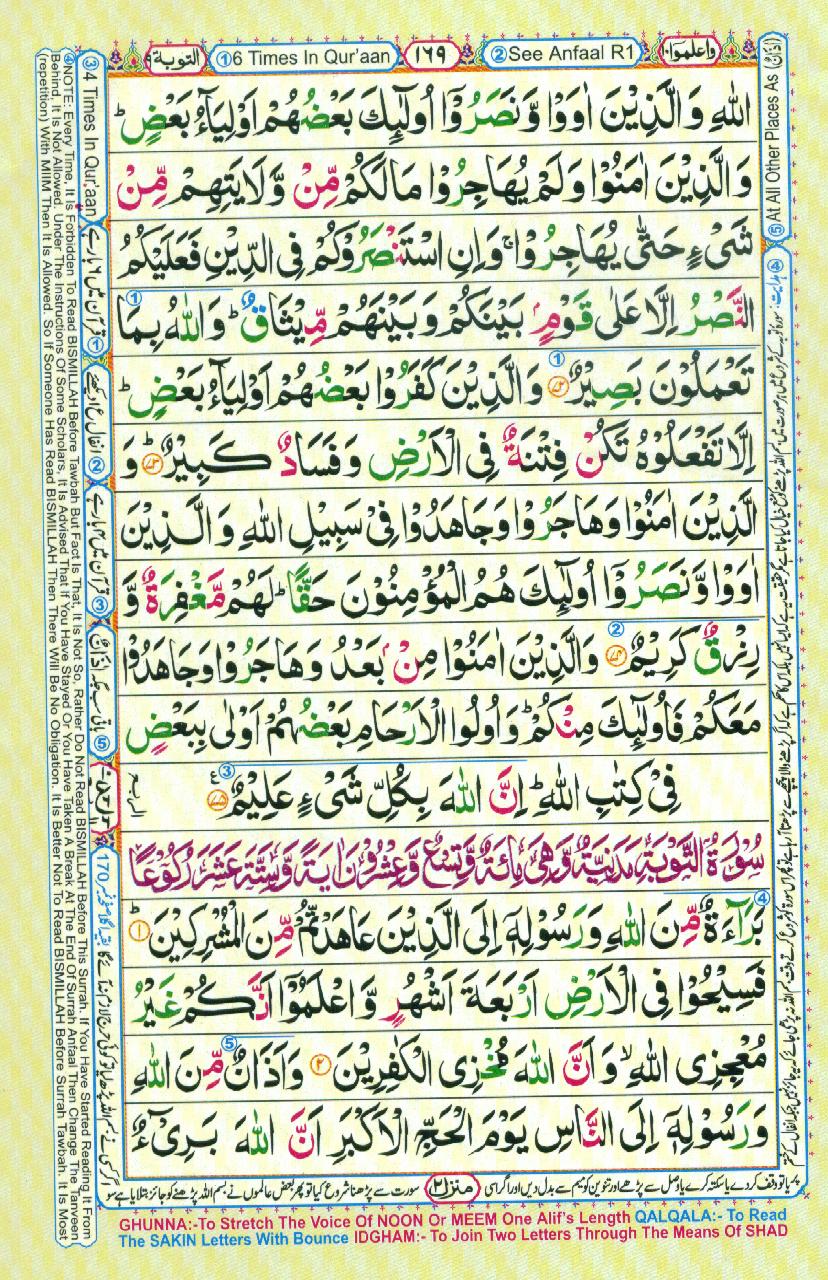 واعلموا١٠
②See Anfaal R1
١٦٩
①6 Times In Qur'aan
التوبة٩
اللهِ وَالَّذِيْنَ اٰوَوْا وَّنَصَرُوْۤا اُولٰٓئِكَ بَعْضُهُمْ اَوْلِيَآءُ بَعْضٍ ؕ
وَالَّذِيْنَ اٰمَنُوْا وَلَمْ يُهَاجِرُوْا مَا لَكُمْ مِّنْ وَّلَايَتِهِمْ مِّنْ
شَىْءٍ حَتّٰى يُهَاجِرُوْا ۚ وَاِنِ اسْتَنْصَرُوْكُمْ فِى الدِّيْنِ فَعَلَيْكُمُ
النَّصْرُ اِلَّا عَلٰى قَوْمٍۭ بَيْنَكُمْ وَبَيْنَهُمْ مِّيْثَاقٌ ؕ وَاللهُ بِمَا ①
تَعْمَلُوْنَ بَصِيْرٌ ①﴿۷۲﴾ وَالَّذِيْنَ كَفَرُوْا بَعْضُهُمْ اَوْلِيَآءُ بَعْضٍ ؕ
اِلَّا تَفْعَلُوْهُ تَكُنْ فِتْنَةٌ فِى الْاَرْضِ وَفَسَادٌ كَبِيْرٌ ؕ﴿۷۳﴾ وَ
الَّذِيْنَ اٰمَنُوْا وَهَاجَرُوْا وَجَاهَدُوْا فِىْ سَبِيْلِ اللهِ وَالَّذِيْنَ
اٰوَوْا وَّنَصَرُوْۤا اُولٰٓئِكَ هُمُ الْمُؤْمِنُوْنَ حَقًّا ؕ لَهُمْ مَّغْفِرَةٌ وَّ
رِزْقٌ كَرِيْمٌ ②﴿۷۴﴾ وَالَّذِيْنَ اٰمَنُوْا مِنْۢ بَعْدُ وَهَاجَرُوْا وَجَاهَدُوْا
مَعَكُمْ فَاُولٰٓئِكَ مِنْكُمْ ؕ وَاُولُوا الْاَرْحَامِ بَعْضُهُمْ اَوْلٰى بِبَعْضٍ
فِىْ كِتٰبِ اللهِ ؕ اِنَّ اللهَ بِكُلِّ شَىْءٍ عَلِيْمٌ ③﴿۷۵﴾
سُوْرَةُ التَّوْبَةِ مَدَنِيَّةٌ وَّهِىَ مِائَةٌ وَّتِسْعٌ وَّعِشْرُوْنَ اٰيَةً وَّسِتَّةَ عَشَرَ رُكُوْعًا
④ بَرَآءَةٌ مِّنَ اللهِ وَرَسُوْلِهٖۤ اِلَى الَّذِيْنَ عَاهَدْتُّمْ مِّنَ الْمُشْرِكِيْنَ ؕ﴿۱﴾
فَسِيْحُوْا فِى الْاَرْضِ اَرْبَعَةَ اَشْهُرٍ وَّاعْلَمُوْۤا اَنَّكُمْ غَيْرُ
مُعْجِزِى اللهِ ۙ وَاَنَّ اللهَ مُخْزِى الْكٰفِرِيْنَ ﴿۲﴾ وَاَذَانٌ ⑤ مِّنَ اللهِ
وَرَسُوْلِهٖۤ اِلَى النَّاسِ يَوْمَ الْحَجِّ الْاَكْبَرِ اَنَّ اللهَ بَرِىْٓءٌ
منزل٢
⑤At All Other Places As (اَذَانٌ)
③4 Times In Qur'aan
① قرآن میں ۶ بار ہے
② انفال ع۱ دیکھئے
③ قرآن میں ۴ بار ہے
⑤ باقی سب جگہ اَذَانٌ
④NOTE: Every Time, It Is Forbidden To Read BISMILLAH Before Tawbah But Fact Is That, It Is Not So, Rather Do Not Read BISMILLAH Before This Surrah. If You Have Started Reading It From
Behind, It Is Not Allowed. Under The Instructions Of Some Scholars, It Is Advised That If You Have Stayed Or You Have Taken A Break At The End Of Surrah Anfaal Then Change The Tanveen
(repetition) With MIIM Then It Is Allowed. So If Someone Has Read BISMILLAH Then There Will Be No Obligation. It Is Better Not To Read BISMILLAH Before Surrah Tawbah. It Is Most
GHUNNA:-To Stretch The Voice Of NOON Or MEEM One Alif's Length QALQALA:- To Read
The SAKIN Letters With Bounce IDGHAM:- To Join Two Letters Through The Means Of SHAD